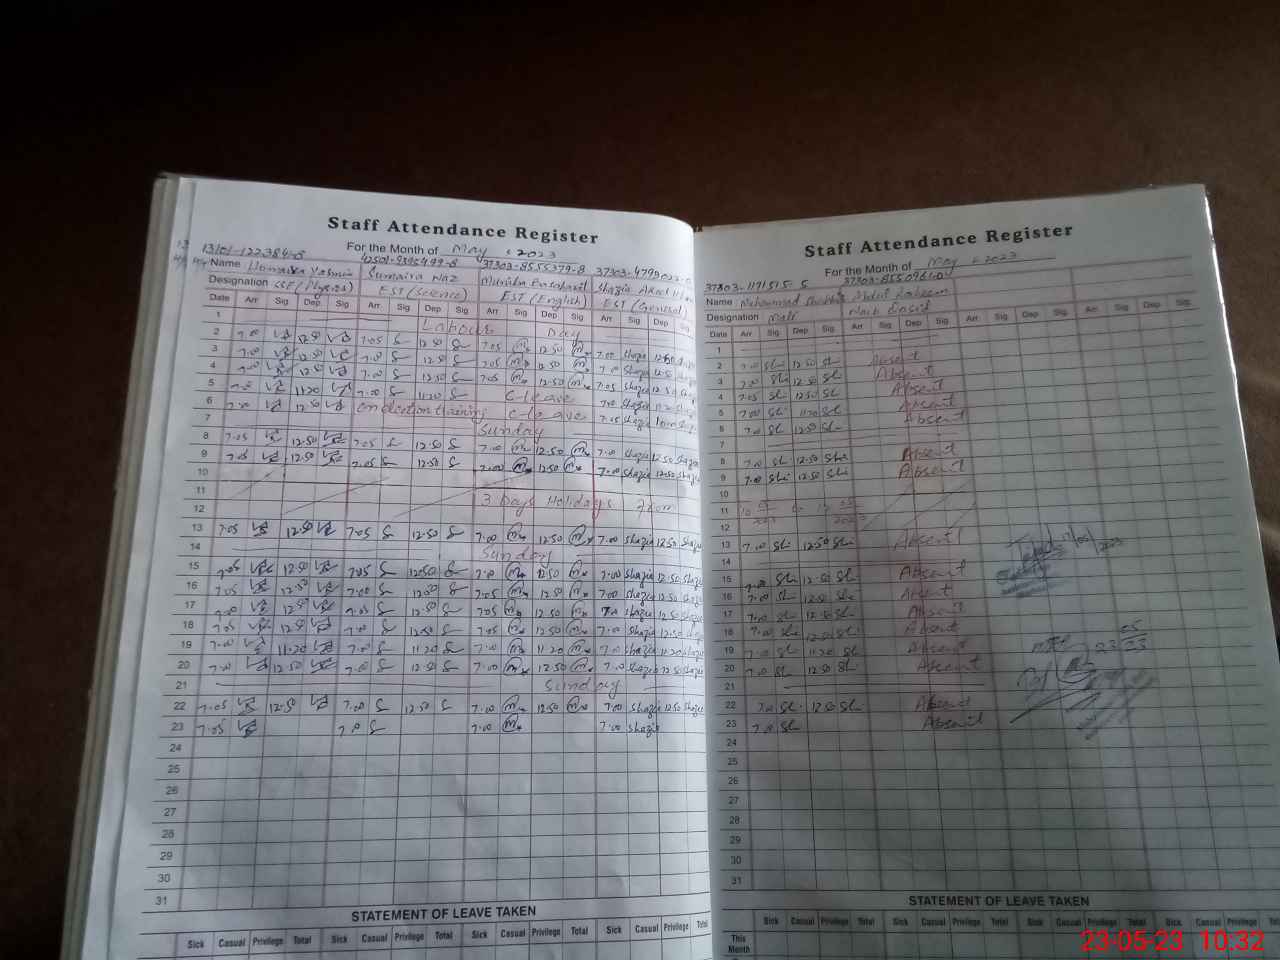 Staff Attendance Register
For the Month of May 2023
13101-1223841-8 42501-9395499-8 37303-8555379-8 37303-4799022-0
Name Homaira Yasmin Sumaira Naz Muniba Shazia
Designation SSE (Physics) EST (Science) EST (English) EST (General)
Date Arr Sig Dep Sig Arr Sig Dep Sig Arr Sig Dep Sig Arr Sig Dep Sig
1 Labour Day
2 7.00 12.50 7.05 12.50 7.05 12.50 7.00 Shazia 12.50
3 7.00 12.50 7.00 12.50 7.05 12.50 7.00 Shazia 12.50
4 7.00 12.50 7.00 12.50 7.05 12.50 7.05 Shazia 12.50
5 7.00 11.20 7.00 11.20 C leave 7.00 Shazia 11.20
6 7.00 12.50 on election training C leave 7.05 Shazia
7 Sunday
8 7.05 12.50 7.05 12.50 7.00 12.50 7.00 Shazia 12.50 Shazia
9 7.05 12.50 7.05 12.50 7.00 12.50 7.00 Shazia 12.50 Shazia
10
11 3 Days Holidays
12
13 7.05 12.50 7.05 12.50 7.00 12.50 7.00 Shazia 12.50 Shazia
14 Sunday
15 7.05 12.50 7.05 12.50 7.00 12.50 7.00 Shazia 12.50 Shazia
16 7.05 12.50 7.00 12.50 7.05 12.50 7.00 Shazia 12.50 Shazia
17 7.00 12.50 7.05 12.50 7.05 12.50 7.00 Shazia 12.50 Shazia
18 7.05 12.50 7.00 12.50 7.05 12.50 7.00 Shazia 12.50 Shazia
19 7.00 11.20 7.00 11.20 7.00 11.20 7.00 Shazia 11.20 Shazia
20 7.00 12.50 7.00 12.50 7.00 12.50 7.00 Shazia 12.50 Shazia
21 Sunday
22 7.05 12.50 7.00 12.50 7.00 12.50 7.00 Shazia 12.50 Shazia
23 7.05 7.00 7.00 7.00 Shazia
24
25
26
27
28
29
30
31
STATEMENT OF LEAVE TAKEN
Sick Casual Privilege Total Sick Casual Privilege Total Sick Casual Privilege Total Sick Casual Privilege Total
Staff Attendance Register
For the Month of May 2023
37303-1171515-5 37303-8550961-9
Name Mohammad Abdul Raheem
Designation Mali Naib Qasid
Date Arr Sig Dep Sig Arr Sig Dep Sig Arr Sig Dep Sig Arr Sig Dep Sig
1
2 7.00 Sh 12.50 Sh Absent
3 7.00 Sh 12.50 Sh Absent
4 7.05 Sh 12.50 Sh Absent
5 7.00 Sh 11.20 Sh Absent
6 7.00 Sh 12.50 Sh Absent
7
8 7.00 Sh 12.50 Sh Absent
9 7.00 Sh 12.50 Sh Absent
10
11
12
13 7.00 Sh 12.50 Sh Absent
14
15 7.00 Sh 12.50 Sh Absent
16 7.00 Sh 12.50 Sh Absent
17 7.00 Sh 12.50 Sh Absent
18 7.00 Sh 12.50 Sh Absent
19 7.00 Sh 11.20 Sh Absent
20 7.00 Sh 12.50 Sh Absent
21
22 7.00 Sh 12.50 Sh Absent
23 7.00 Sh Absent
24
25
26
27
28
29
30
31
STATEMENT OF LEAVE TAKEN
Sick Casual Privilege Total Sick Casual Privilege Total Sick Casual Privilege Total Sick Casual Privilege Total
This Month
23-05-23 10:32